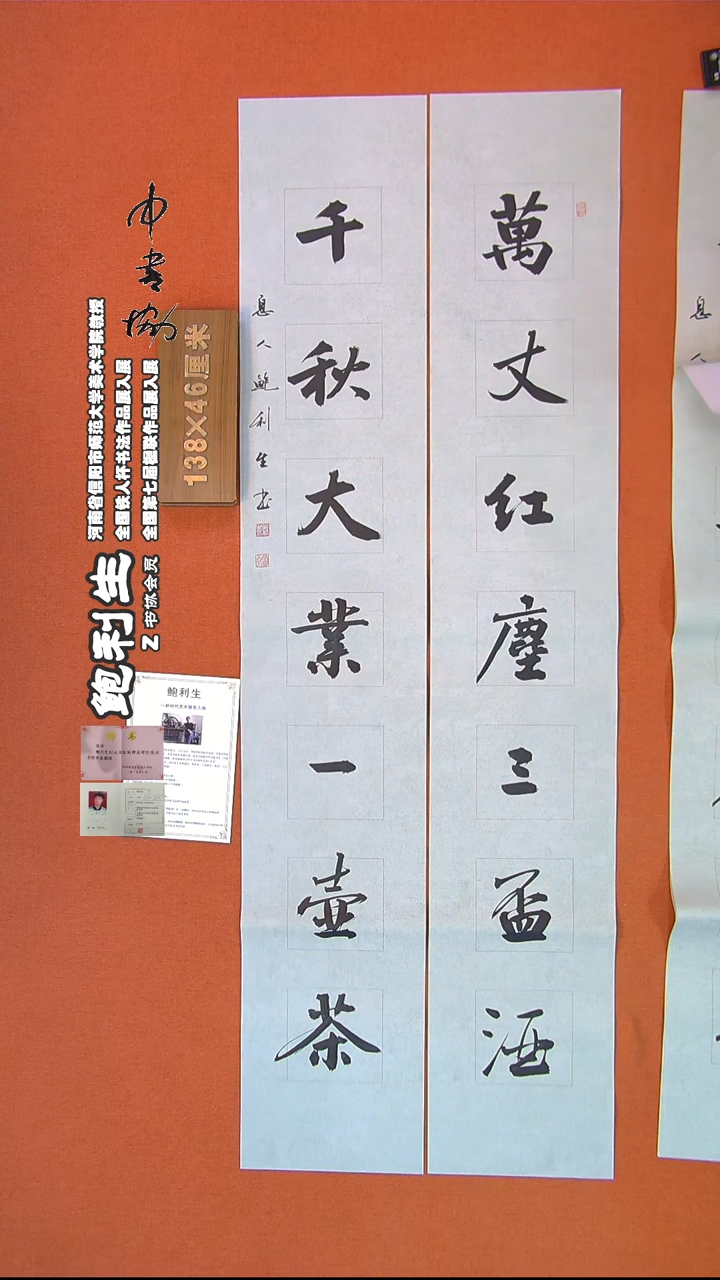 萬丈红塵三盃酒
千秋大業一壺茶
息人鲍利生书
中书协
138×46厘米
河南省信阳市师范大学美术学院教授
全国铁人杯书法作品展入展
全国第七届楹联作品展入展
鲍利生
Z 书协会员
鲍利生
息
人